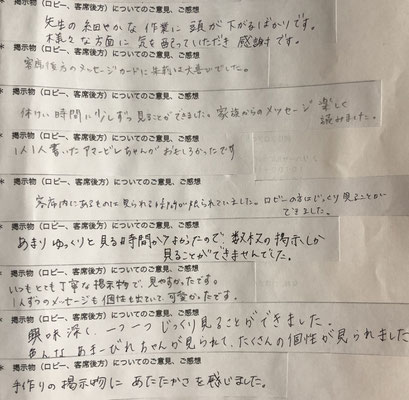 掲示物（ロビー、客席後方）についてのご意見、ご感想
先生の細やかな作業に頭が下がるばかりです。
様々な方面に気を配っていただき感謝です。
* 掲示物（ロビー、客席後方）についてのご意見、ご感想
客席後方のメッセージカードに生徒は大喜びでした。
* 掲示物（ロビー、客席後方）についてのご意見、ご感想
休けい時間に少しずつ見ることができました。家族からのメッセージ 楽しく
読みました。
* 掲示物（ロビー、客席後方）についてのご意見、ご感想
1人1人書いたアマービレちゃんがおもしろかったです
* 掲示物（ロビー、客席後方）についてのご意見、ご感想
客席内にあるものは見られる時間が限られていました。ロビーの方はじっくり見ることが
できました。
* 掲示物（ロビー、客席後方）についてのご意見、ご感想
あまりゆっくりと見る時間がなかったので、数枚の掲示しか
見ることができませんでした。
* 掲示物（ロビー、客席後方）についてのご意見、ご感想
いつもとても丁寧な掲示物で、見やすかったです。
1人ずつのメッセージも個性も出ていて可愛かったです。
* 掲示物（ロビー、客席後方）についてのご意見、ご感想
興味深く、一つ一つじっくり見ることができました。
色んなあまーびれちゃんが見られて、たくさんの個性が見られました
* 掲示物（ロビー、客席後方）についてのご意見、ご感想
手作りの掲示物にあたたかさを感じました。